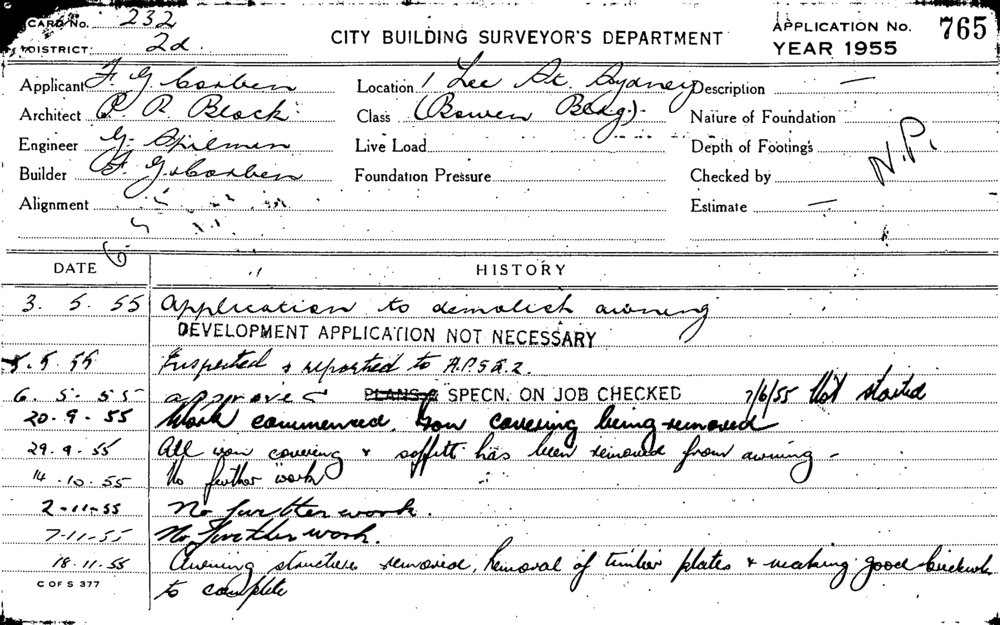 CARD No. 232
DISTRICT 2d.
CITY BUILDING SURVEYOR'S DEPARTMENT
APPLICATION No. 765
YEAR 1955
Applicant F G Corben
Location 1 Lee St. Sydney
Description —
Architect P. R. Block
Class (Bowen Bldg).
Nature of Foundation
Engineer G. Spilman
Live Load
Depth of Footings
N.P.
Builder F. G. Corben
Foundation Pressure
Checked by
Alignment
Estimate —
DATE HISTORY
3. 5. 55 Application to demolish awning
DEVELOPMENT APPLICATION NOT NECESSARY
5. 5. 55 Inspected & reported to
6. 5. 55 approved PLANS & SPECN. ON JOB CHECKED 7/6/55 Not started
20.9.55 Work commenced. Iron covering being removed
29.9.55 All iron covering & soffitt has been removed from awning -
14.10.55 No further work
2-11-55 No further work.
7-11-55 No further work.
18.11.55 Awning structure removed, Removal of timber plates & making good brickwk
C OF S 377
to complete